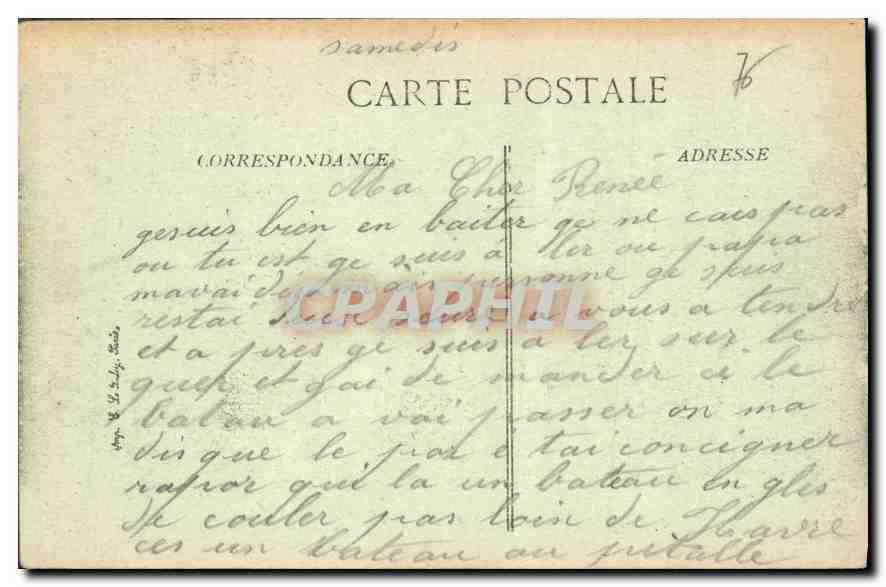 samedis
76
CARTE POSTALE
CORRESPONDANCE
ADRESSE
Ma Cher Renée
gesuis bien en baiter ge ne cais pas
ou tu est ge suis a ler ou papa
mavai di ge suis
CPAPHIL
restai heure a vous a tendre
et a pres ge suis a ler sur le
quer et gai de mander ci le
batau a vai passer on ma
dis que le por e tai concigner
rapor qui la un bateau en gles
de couler pas loin de Havre
ces un bateau au pitalle
Imp. E. Le Deley, Paris.